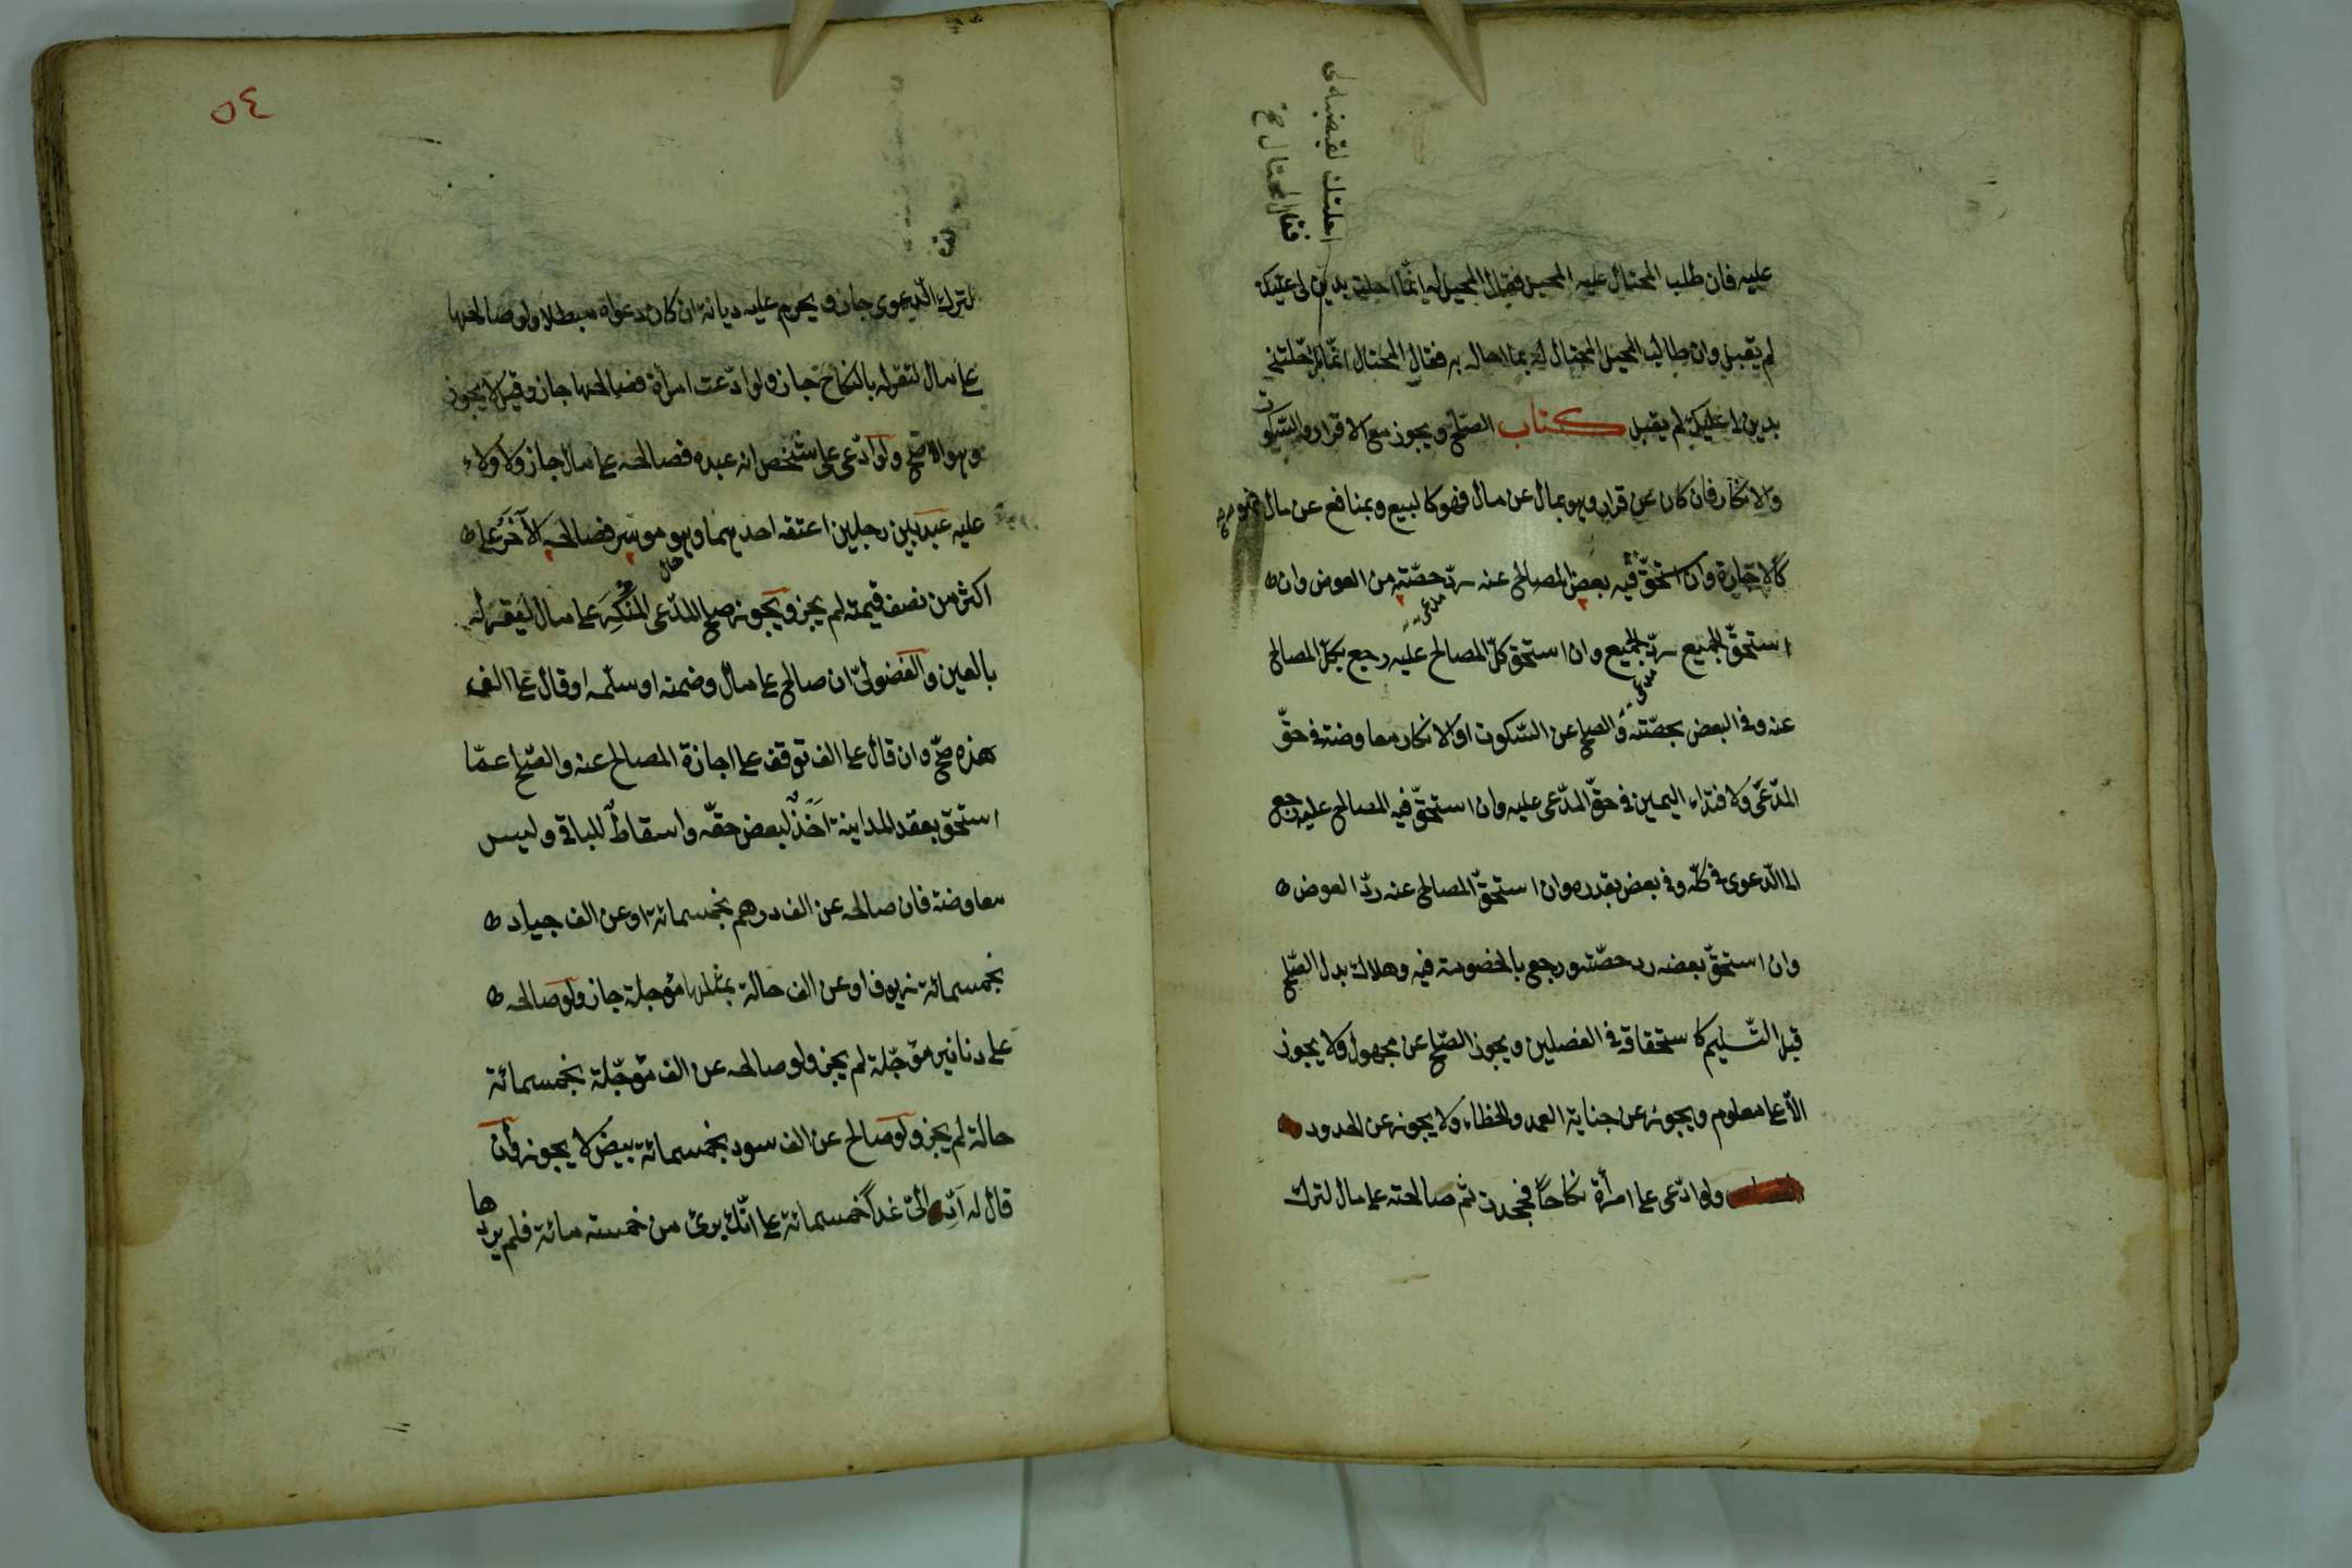 احلتك لتقبضه لي
فقال المحتال
عليه فان طلب المحتال عليه المحيل فقال المحيل له انّما احلت بدين لى عليك
لم يقبل وان طالب المحيل المحتال له بما احاله به فقال المحتال انّما احلتنى
بدين لى عليك لم يقبل كتاب الصّلح ويجوز مع الاقرار والسّكوت
والانكار فان كان عن اقرار وهو بمال عن مال فهو كالبيع وبمنافع عن مال فهو
كالاجارة وان استحقّ فيه بعض المصالح عنه ردّ حصّته من العوض وان
مدعى
استحقّ الجميع ردّ الجميع وان استحق كلّ المصالح عليه رجع بكلّ المصالح
مدعى
عنه وفى البعض بحصّته والصلح عن السّكوت او الانكار معاوضة فى حقّ
المدّعى ولافتداء اليمين فى حقّ المدّعى عليه وان استحقّ فيه المصالح عليه رجع
الى الدّعوى فى كلّه وفى بعض بقدره وان استحقّ المصالح عنه ردّ العوض
وان استحقّ بعضه رد حصّته ورجع بالخصومة فيه وهلاك بدل الصّلح
قبل التّسليم كاستحقاقه فى الفصلين ويجوز الصّلح عن مجهول ولا يجوز
الّا على معلوم ويجوز عن جناية العمد والخطاء ولا يجوز عن الحدود
ولو ادّعى على امرأة نكاحاً فجحدت ثم صالحته على مال لترك
٥٤
لترك الدّعوى جاز ويحرم عليه ديانة ان كان دعواه مبطلا ولو صالحها
على مال لتقرّ له بالنكاح جاز ولو ادّعت امرأة فصالحها جاز وقيل لا يجوز
وهو الاصحّ ولو ادّعى على شخص انه عبده فصالحه على مال جاز ولا ولاء
عليه عبد بين رجلين اعتقه احدهما وهو موسر فصالحه الآخر على
اكثر من نصف قيمته لم يجز ويجوز صلح المدّعى المنكر على مال ليقرّ له
بالعين والفضولىّ ان صالح على مال وضمنه او سلّمه او قال على الف
هذه صحّ وان قال على الف توقف على اجازة المصالح عنه والصّلح عمّا
استحقّ بعقد المداينة اخذٌ لبعض حقّه واسقاط للباقى وليس
معاوضة فان صالحه عن الف درهم بخمسمائة او عن الف جياد
بخمسمائة زيوف او عن الف حالة بمثلها مؤجلة جاز ولو صالحه
على دنانير مؤجّلة لم يجز ولو صالحه عن الف مؤجّلة بخمسمائة
حالة لم يجز ولو صالح عن الف سود بخمسمائة بيض لا يجوز وان
قال له ادّ الىّ غداً خمسمائة على انّك برئ من خمسة مائة فلم يردها